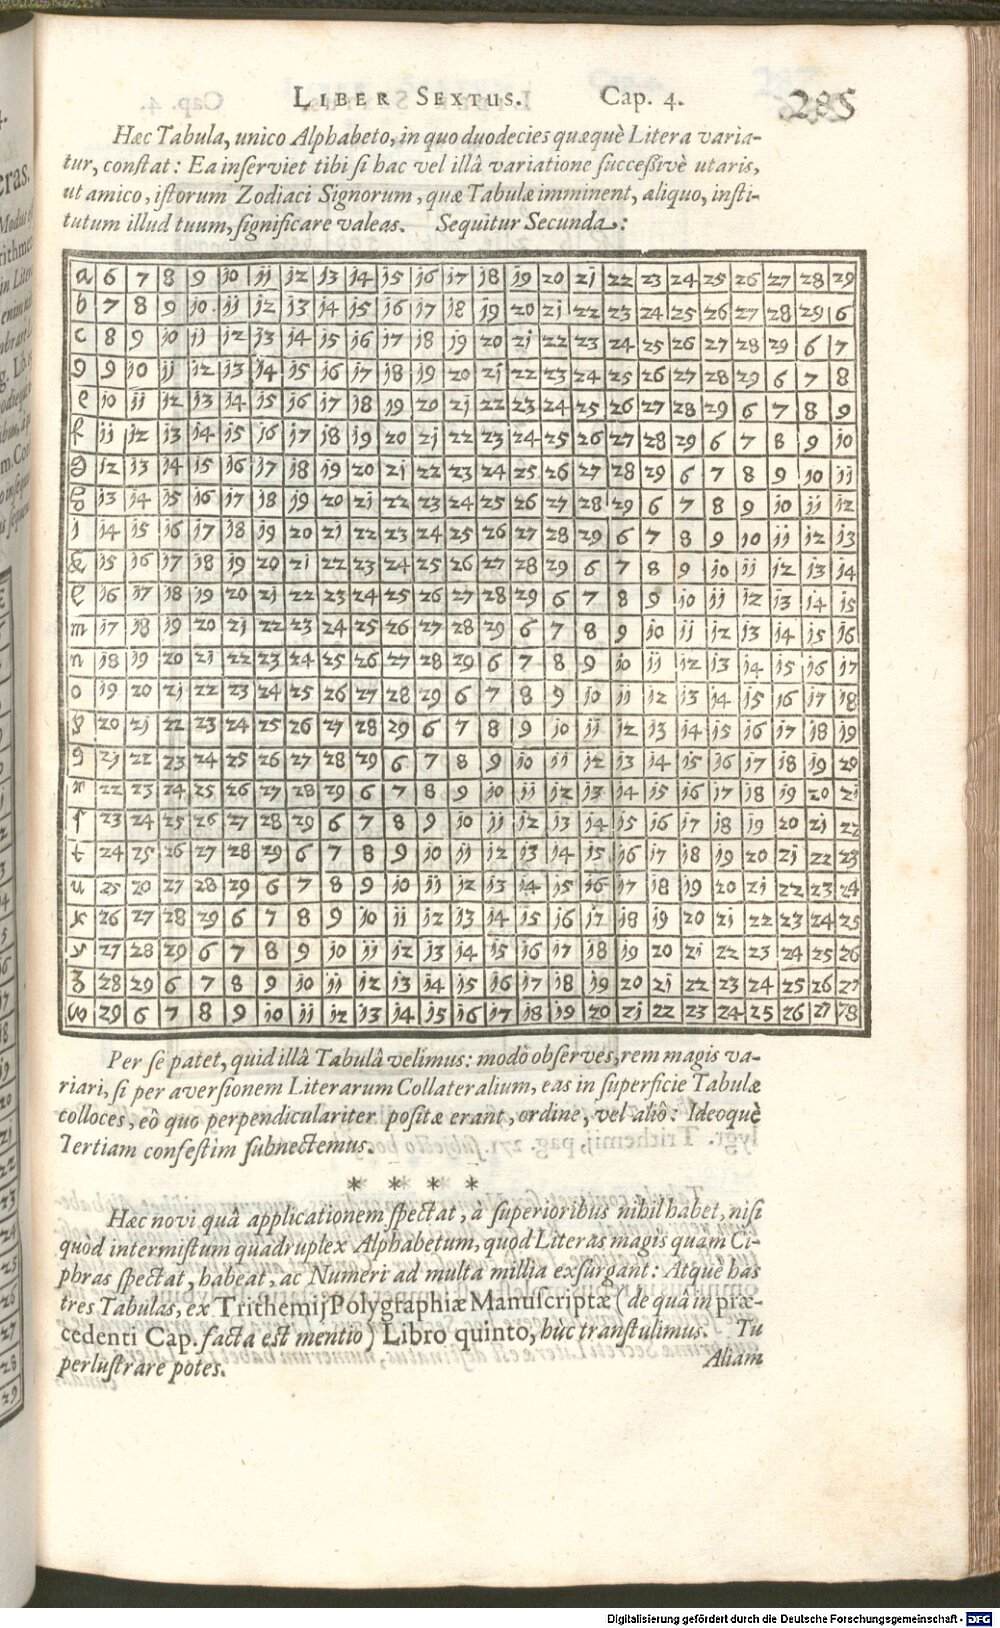 LIBER SEXTUS. Cap. 4. 285
Hæc Tabula, unico Alphabeto, in quo duodecies quæquè Litera varia-
tur, constat: Ea inserviet tibi si hac vel illâ variatione successivè utaris,
ut amico, istorum Zodiaci Signorum, quæ Tabulæ imminent, aliquo, insti-
tutum illud tuum, significare valeas. Sequitur Secunda:
a 6 7 8 9 10 11 12 13 14 15 16 17 18 19 20 21 22 23 24 25 26 27 28 29
b 7 8 9 10 11 12 13 14 15 16 17 18 19 20 21 22 23 24 25 26 27 28 29 6
c 8 9 10 11 12 13 14 15 16 17 18 19 20 21 22 23 24 25 26 27 28 29 6 7
d 9 10 11 12 13 14 15 16 17 18 19 20 21 22 23 24 25 26 27 28 29 6 7 8
e 10 11 12 13 14 15 16 17 18 19 20 21 22 23 24 25 26 27 28 29 6 7 8 9
f 11 12 13 14 15 16 17 18 19 20 21 22 23 24 25 26 27 28 29 6 7 8 9 10
g 12 13 14 15 16 17 18 19 20 21 22 23 24 25 26 27 28 29 6 7 8 9 10 11
h 13 14 15 16 17 18 19 20 21 22 23 24 25 26 27 28 29 6 7 8 9 10 11 12
i 14 15 16 17 18 19 20 21 22 23 24 25 26 27 28 29 6 7 8 9 10 11 12 13
k 15 16 17 18 19 20 21 22 23 24 25 26 27 28 29 6 7 8 9 10 11 12 13 14
l 16 17 18 19 20 21 22 23 24 25 26 27 28 29 6 7 8 9 10 11 12 13 14 15
m 17 18 19 20 21 22 23 24 25 26 27 28 29 6 7 8 9 10 11 12 13 14 15 16
n 18 19 20 21 22 23 24 25 26 27 28 29 6 7 8 9 10 11 12 13 14 15 16 17
o 19 20 21 22 23 24 25 26 27 28 29 6 7 8 9 10 11 12 13 14 15 16 17 18
p 20 21 22 23 24 25 26 27 28 29 6 7 8 9 10 11 12 13 14 15 16 17 18 19
q 21 22 23 24 25 26 27 28 29 6 7 8 9 10 11 12 13 14 15 16 17 18 19 20
r 22 23 24 25 26 27 28 29 6 7 8 9 10 11 12 13 14 15 16 17 18 19 20 21
s 23 24 25 26 27 28 29 6 7 8 9 10 11 12 13 14 15 16 17 18 19 20 21 22
t 24 25 26 27 28 29 6 7 8 9 10 11 12 13 14 15 16 17 18 19 20 21 22 23
u 25 20 27 28 29 6 7 8 9 10 11 12 13 14 15 16 17 18 19 20 21 22 23 24
x 26 27 28 29 6 7 8 9 10 11 12 13 14 15 16 17 18 19 20 21 22 23 24 25
y 27 28 29 6 7 8 9 10 11 12 13 14 15 16 17 18 19 20 21 22 23 24 25 26
z 28 29 6 7 8 9 10 11 12 13 14 15 16 17 18 19 20 21 22 23 24 25 26 27
w 29 6 7 8 9 10 11 12 13 14 15 16 17 18 19 20 21 22 23 24 25 26 27 28
Per se patet, quid illâ Tabulâ velimus: modò observes, rem magis va-
riari, si per aversionem Literarum Collateralium, eas in superficie Tabulæ
colloces, eô quo perpendiculariter positæ erant, ordine, vel aliô: Ideoquè
Tertiam confestim subnectemus.
* * * *
Hæc novi quâ applicationem spectat, à superioribus nihil habet, nisi
quòd intermistum quadruplex Alphabetum, quod Literas magis quàm Ci-
phras spectat, habeat, ac Numeri ad multa millia exsurgant: Atquè has
tres Tabulas, ex Trithemij Polygraphiæ Manuscriptæ (de quâ in præ-
cedenti Cap. facta est mentio) Libro quinto, hùc transtulimus. Tu
perlustrare potes. Aliam
Digitalisierung gefördert durch die Deutsche Forschungsgemeinschaft - DFG